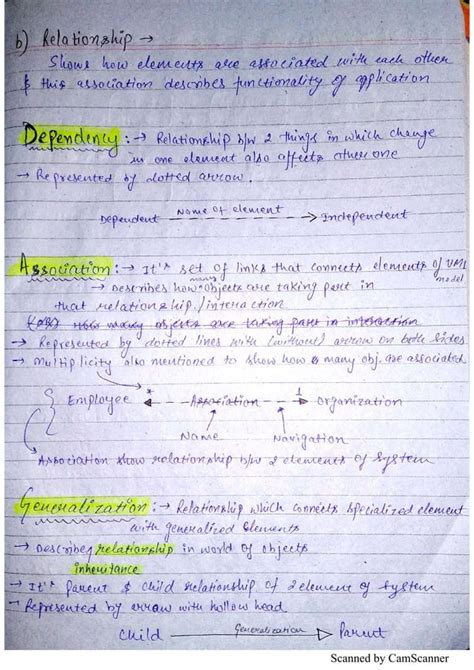 b) Relationship →
Shows how elements are associated with each other
& this association describes functionality of application
Dependency :→ Relationship b/w 2 things in which change
in one element also affects other one
→ Represented by dotted arrow.
Name of element
Dependent -----→ Independent
Association :→ It's set of links that connects elements of UML model
→ describes how many objects are taking part in
that relationship / interaction
(or) How many objects are taking part in interaction
→ Represented by dotted lines with (without) arrow on both sides
→ Multiplicity also mentioned to show how many obj. are associated
* 1
Employee ← Association → Organization
Name Navigation
Association show relationship b/w 2 elements of system
Generalization :→ Relationship which connects specialized element
with generalized elements
→ Describes relationship in world of objects
inheritance
→ It's Parent & child relationship of 2 element of system
→ Represented by arrow with hollow head
Child Generalization ▷ Parent
Scanned by CamScanner